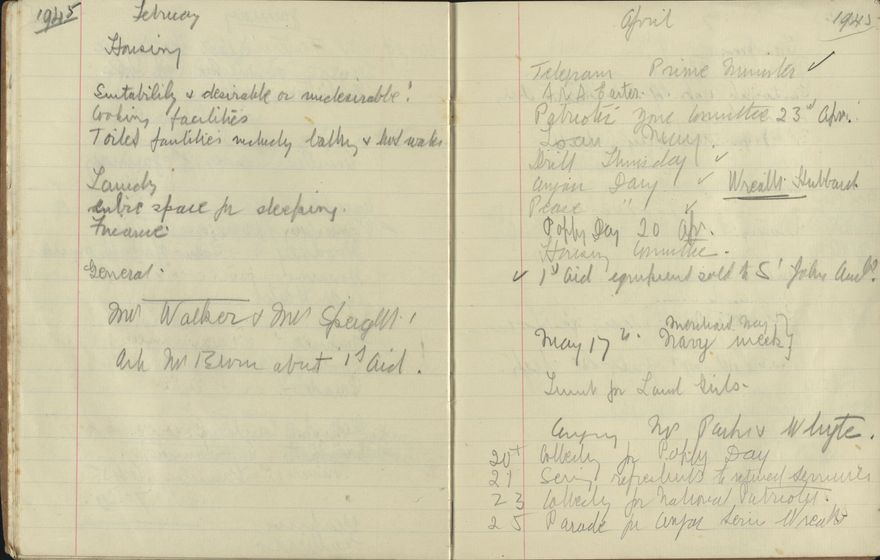 1945 February
Housing
Suitability & desirable or undesirable!
Cooking facilities
Toilet facilities including bathing & hot water
Laundry
space for sleeping.
Finance.
General.
Mrs Walker & Mrs Speight!
Ask Mr Brown about 1st Aid!
April 1945
Telegram Prime Minister ✓
A.R.A. Easter.
Patriotic Zone Committee 23rd Apr.
Loan
Drill Thursday ✓
Anzac Day ✓ Wreath Hubbard
Peace " ✓
Poppy Day 20 Apr.
Housing Committee.
✓ 1st Aid equipment sold to St John Amb.
May 17th. Merchant Navy }
Navy week }
for Land Girls.
Mrs Parks & Whyte.
20th Collecting for Poppy Day
21 Serving refreshments to returned servicemen
23 Collecting for National Patriotic.
25 Parade for Anzac Wreath